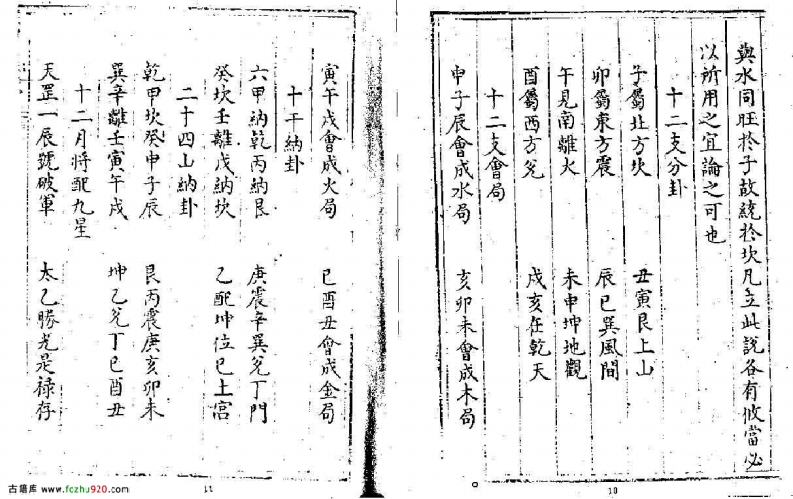 與水同旺於子故統於坎凡立此說各有攸當必
以所用之宜論之可也
十二支分卦
子屬北方坎　丑寅艮上山
卯屬東方震　辰巳巽風間
午見南離火　未申坤地觀
酉屬西方兌　戌亥在乾天
十二支會局
申子辰會成水局　亥卯未會成木局
10
寅午戌會成火局　巳酉丑會成金局
十干納卦
六甲納乾丙納艮　庚震辛巽兌丁門
癸坎壬離戊納坎　乙配坤位己土宮
二十四山納卦
乾甲坎癸申子辰　艮丙震庚亥卯未
巽辛離壬寅午戌　坤乙兌丁巳酉丑
十二月將配九星
天罡一辰號破軍　太乙勝光是祿存
11
古籍库 www.fczhu920.com